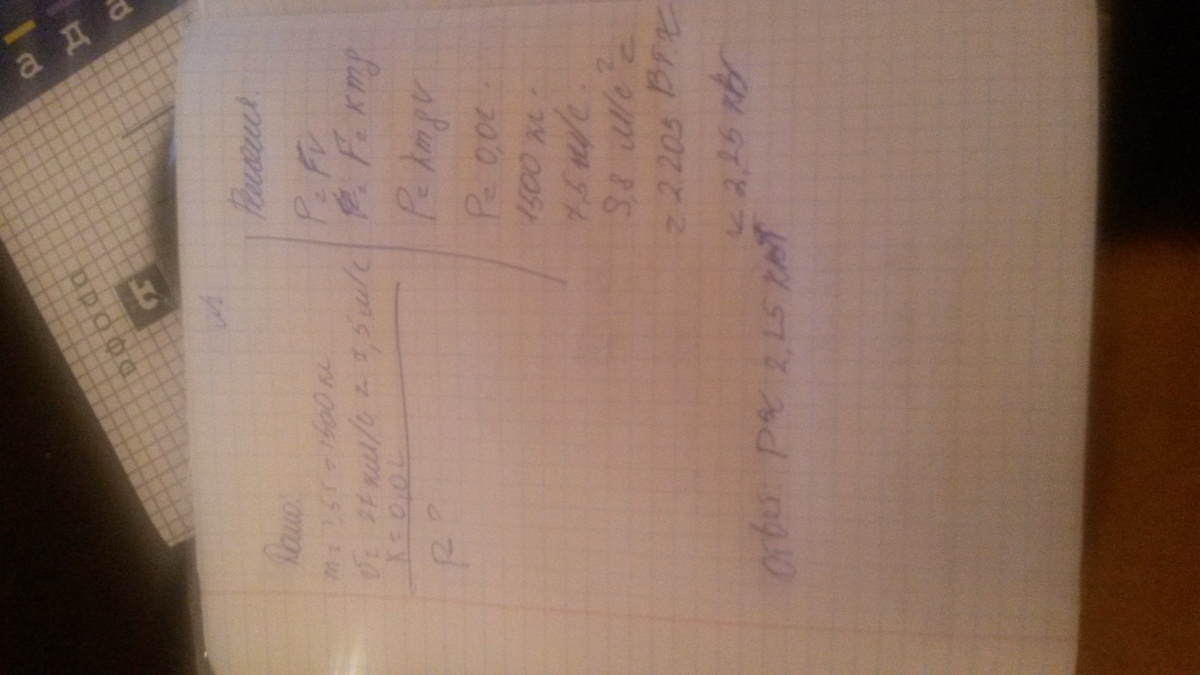 а д а
офоро
Дано:
m = 1,5т = 1500 кг
v = 27 км/ч = 7,5 м/с
k = 0,02
P = ?
Решение:
P = Fv
F = kmg
P = kmgv
P = 0,02 ·
1500 кг ·
7,5 м/с ·
9,8 м/с² =
= 2205 Вт ≈
≈ 2,25 кВт
Ответ: P ≈ 2,25 кВт